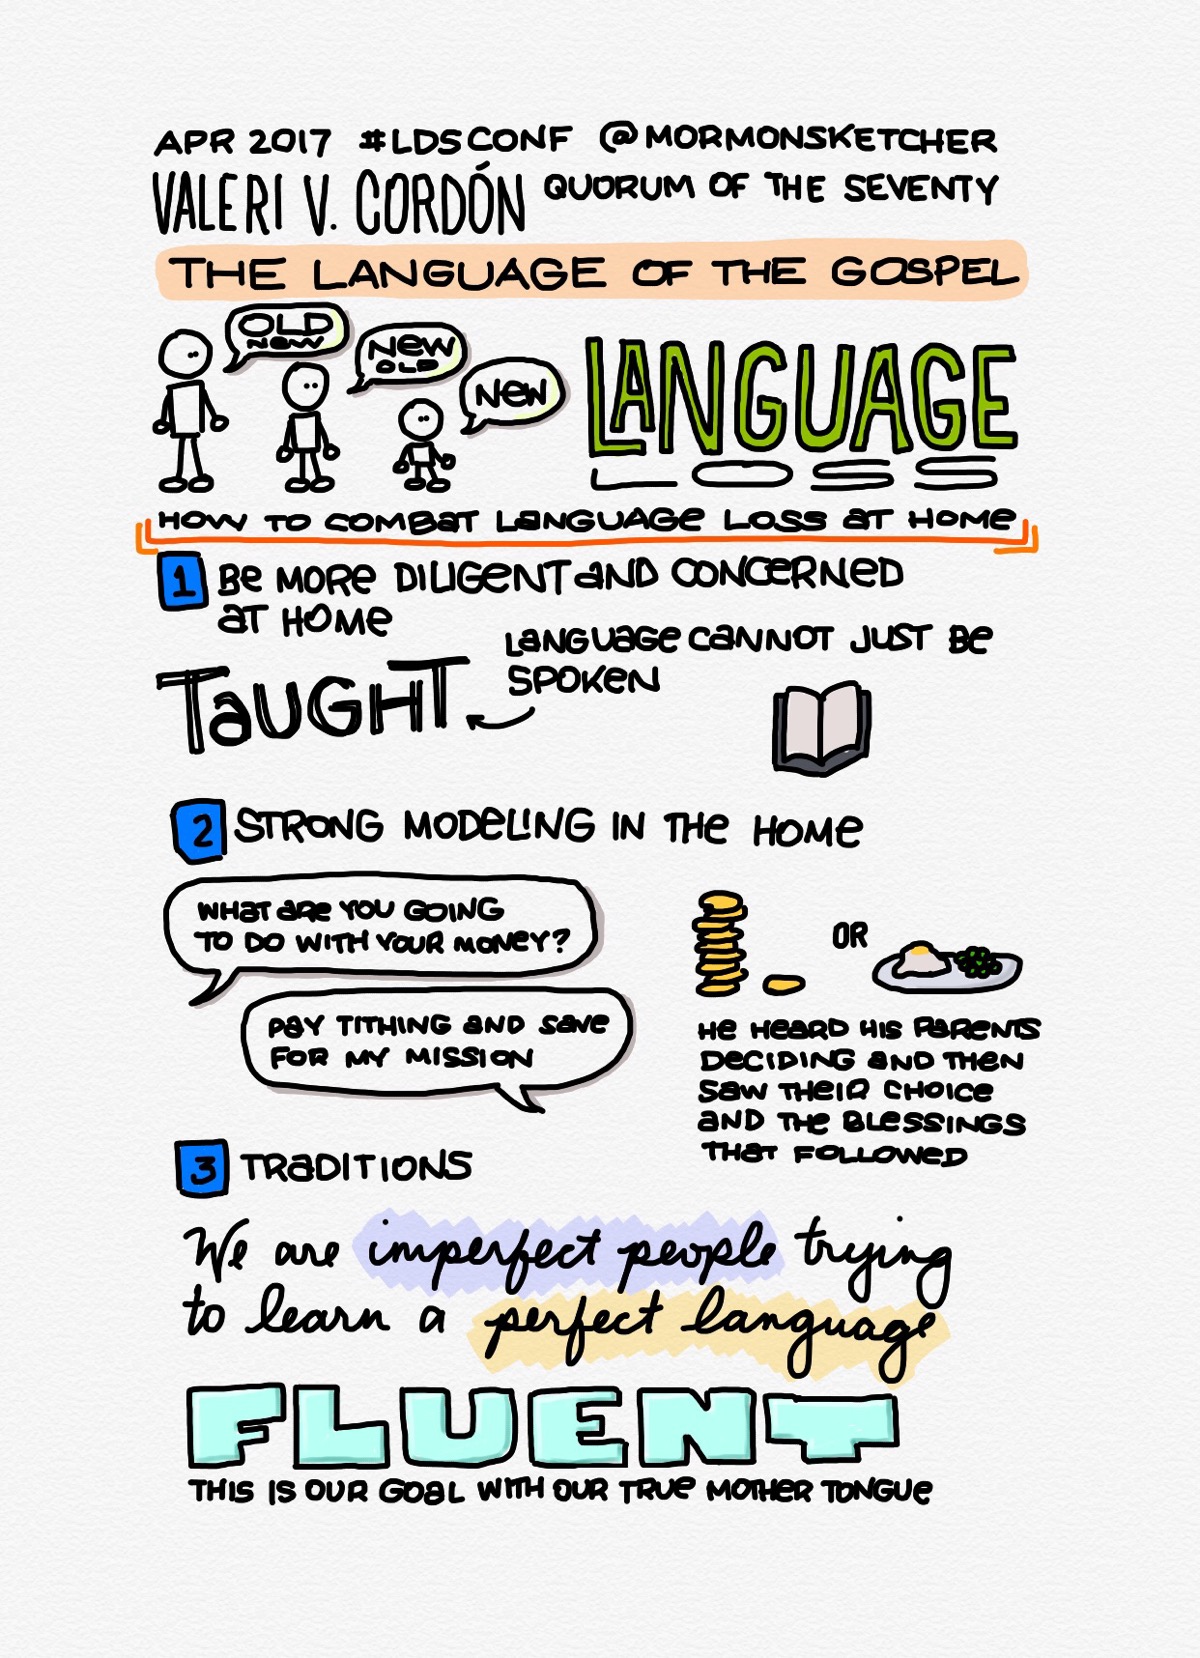 APR 2017 #LDSCONF @MORMONSKETCHER
VALERI V. CORDÓN QUORUM OF THE SEVENTY
THE LANGUAGE OF THE GOSPEL
OLD
NEW
NEW
OLD
NEW
LANGUAGE
LOSS
HOW TO COMBAT LANGUAGE LOSS AT HOME
1 BE MORE DILIGENT AND CONCERNED
AT HOME
LANGUAGE CANNOT JUST BE
SPOKEN
TAUGHT
2 STRONG MODELING IN THE HOME
WHAT ARE YOU GOING
TO DO WITH YOUR MONEY?
PAY TITHING AND SAVE
FOR MY MISSION
OR
HE HEARD HIS PARENTS
DECIDING AND THEN
SAW THEIR CHOICE
AND THE BLESSINGS
THAT FOLLOWED
3 TRADITIONS
We are imperfect people trying
to learn a perfect language
FLUENT
THIS IS OUR GOAL WITH OUR TRUE MOTHER TONGUE